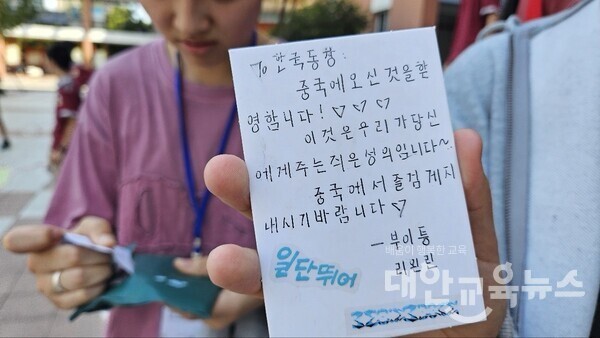 To 한국동향:
중국에 오신 것을 환
영합니다! ♡ ♡ ♡
이것은 우리가 당신
에게 주는 작은 성의입니다~.
중국에서 즐겁게 지
내시기 바랍니다 ♡
—부이통
리윈린
일단뛰어
배움이 행복한 교육
대안교육뉴스